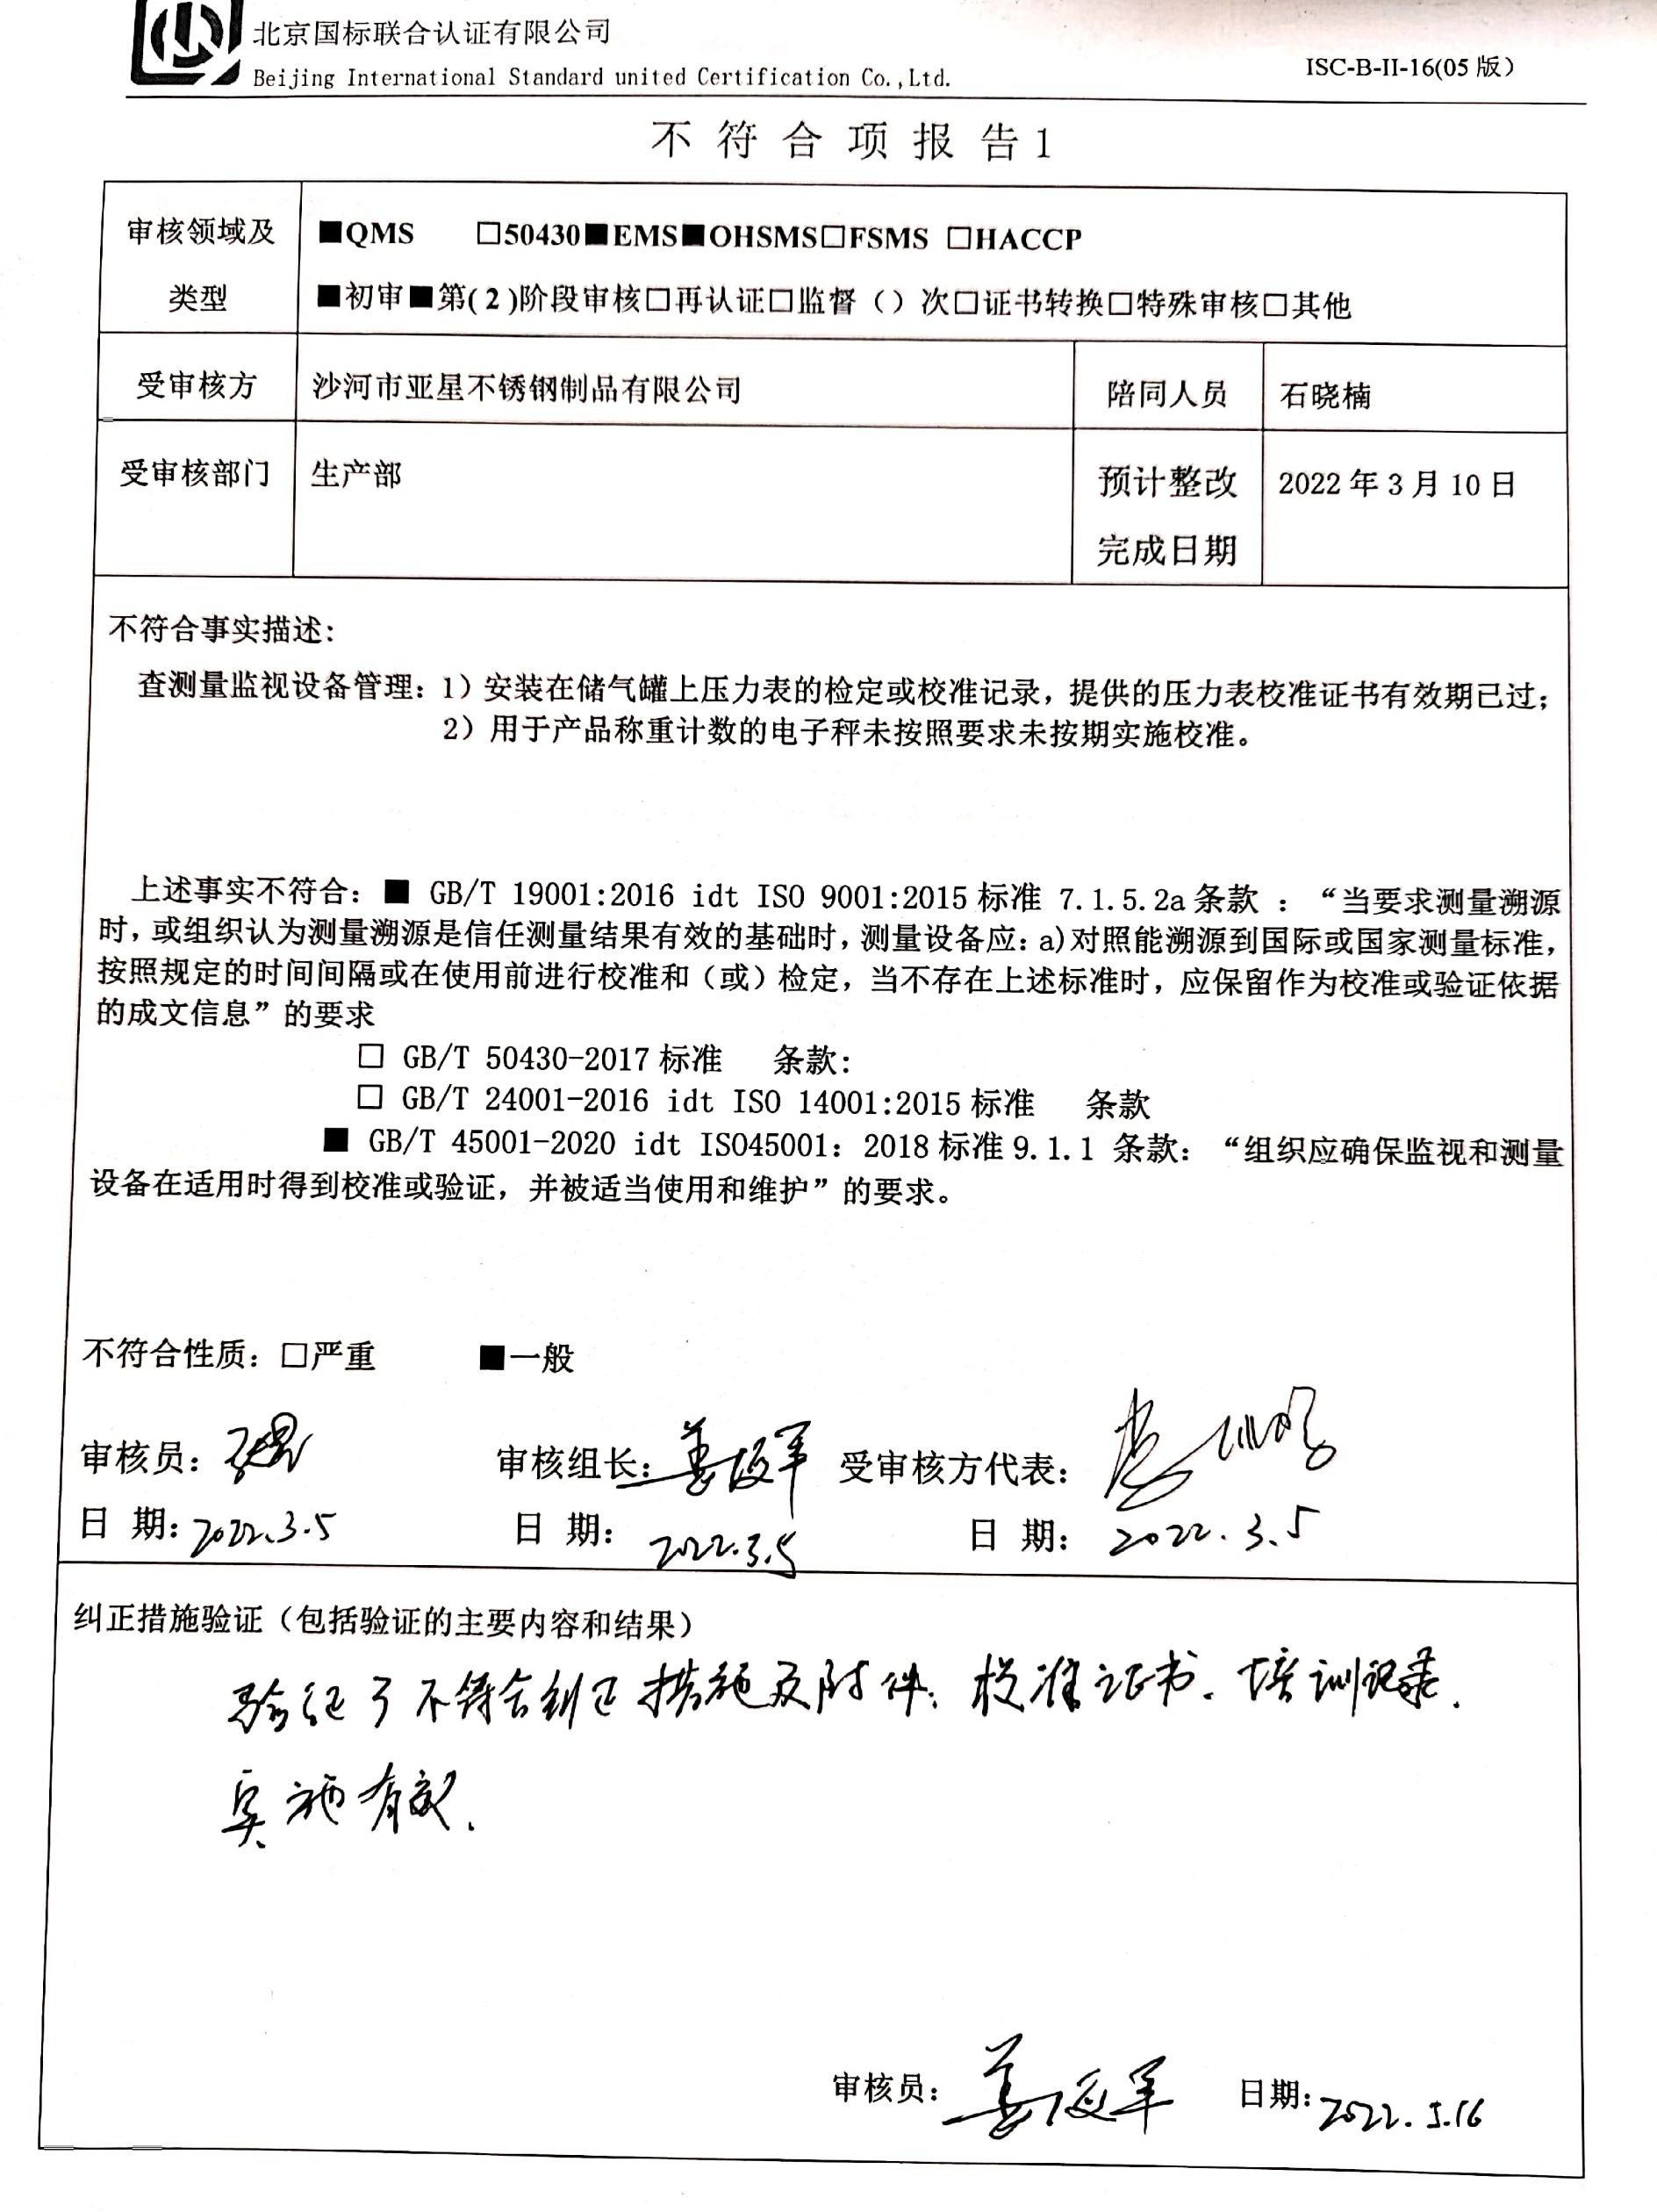 北京国标联合认证有限公司
Beijing International Standard united Certification Co.,Ltd.
ISC-B-II-16(05 版)
不 符 合 项 报 告 1
审核领域及
类型
■QMS □50430■EMS■OHSMS□FSMS □HACCP
■初审■第( 2 )阶段审核□再认证□监督（）次□证书转换□特殊审核□其他
受审核方
沙河市亚星不锈钢制品有限公司
陪同人员
石晓楠
受审核部门
生产部
预计整改
完成日期
2022 年 3 月 10 日
不符合事实描述:
查测量监视设备管理：1）安装在储气罐上压力表的检定或校准记录，提供的压力表校准证书有效期已过；
2）用于产品称重计数的电子秤未按照要求未按期实施校准。
上述事实不符合：■ GB/T 19001:2016 idt ISO 9001:2015 标准 7.1.5.2a 条款 ：“当要求测量溯源
时，或组织认为测量溯源是信任测量结果有效的基础时，测量设备应：a)对照能溯源到国际或国家测量标准，
按照规定的时间间隔或在使用前进行校准和（或）检定，当不存在上述标准时，应保留作为校准或验证依据
的成文信息”的要求
□ GB/T 50430-2017 标准 条款:
□ GB/T 24001-2016 idt ISO 14001:2015 标准 条款
■ GB/T 45001-2020 idt ISO45001：2018 标准 9.1.1 条款：“组织应确保监视和测量
设备在适用时得到校准或验证，并被适当使用和维护”的要求。
不符合性质：□严重 ■一般
审核员： 审核组长： 受审核方代表：
日 期: 2022.3.5 日 期: 2022.3.5 日 期: 2022.3.5
纠正措施验证（包括验证的主要内容和结果）
验证了不符合纠正措施及附件：校准证书、培训记录.
实施有效.
审核员： 日期: